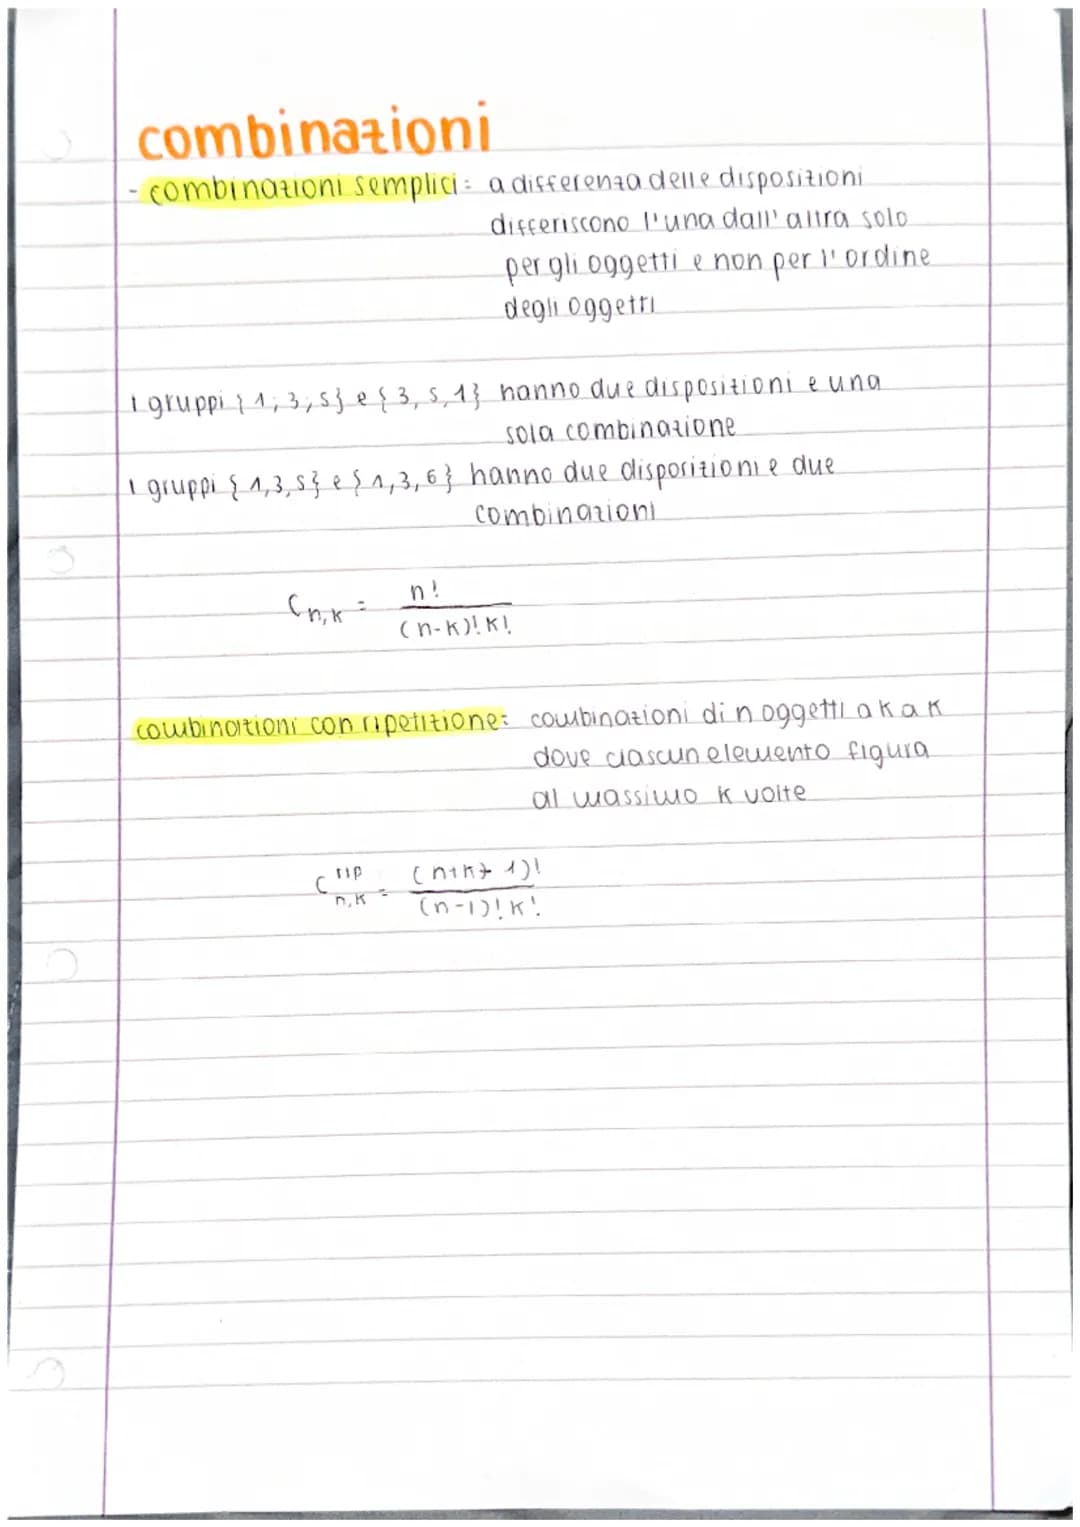 combinazioni
- combinazioni semplici: a differenza delle disposizioni
differiscono l'una dall'altra solo
per gli oggetti e non per l'ordine
degli oggetti
I gruppi { 1, 3, 5} e { 3, 5, 1} hanno due disposizioni e una
sola combinazione
I gruppi { 1,3,5} e { 1,3,6} hanno due disposizioni e due
combinazioni
C n,k = n! / (n-k)! k!
combinazioni con ripetizione: combinazioni di n oggetti a k a k
dove ciascun elemento figura
al massimo k volte
C rip n,k = (n+k+1)! / (n-1)! k!